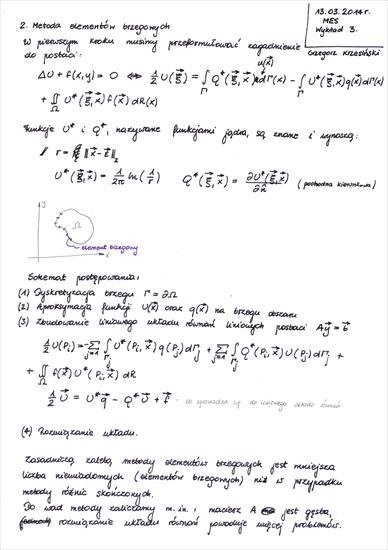 13.03.2014r.
MES
Wykład 3.
Grzegorz Krzesiński
2. Metoda elementów brzegowych
W pierwszym kroku musimy przeformułować zagadnienie
do postaci:
u(x⃗)
ΔU + f(x,y) = 0 ⇔ 1/2 U(ξ⃗) = ∫_Γ Q*(ξ⃗,x⃗) dΓ(x) − ∫_Γ U*(ξ⃗,x⃗)q(x⃗)dΓ(x)
+ ∬_Ω U*(ξ⃗,x⃗)f(x⃗) dΩ(x)
Funkcje U* i Q*, nazywane funkcjami jądra, są znane i wynoszą:
r = ‖x⃗ − ξ⃗‖₂
U*(ξ⃗,x⃗) = 1/2π ln(1/r) Q*(ξ⃗,x⃗) = ∂U*(ξ⃗,x⃗)/∂n̂ (pochodna kierunkowa)
y
Ω
element brzegowy
x
Schemat postępowania:
(1) Dyskretyzacja brzegu Γ = ∂Ω
(2) Aproksymacja funkcji U(x⃗) oraz q(x⃗) na brzegu obszaru
(3) Zbudowanie liniowego układu równań liniowych postaci Ay⃗ = b⃗
1/2 U(Pᵢ) = −∑ⱼ₌₁ ∫_Γⱼ U*(Pᵢ,x⃗) q(Pⱼ)dΓⱼ + ∑ⱼ₌₁ ∫_Γⱼ Q*(Pᵢ,x⃗)U(Pⱼ) dΓⱼ +
+ ∬_Ω f(x⃗) U*(Pᵢ,x⃗) dΩ
1/2 U⃗ = U*q⃗ − Q*U⃗ + f⃗ - co sprowadza się do liniowego układu równań
(4) Rozwiązanie układu.
Zasadniczą zaletą metody elementów brzegowych jest mniejsza
liczba niewiadomych (elementów brzegowych) niż w przypadku
metody różnic skończonych.
Do wad metody zaliczamy m.in.: macierz A jest gęsta,
rozwiązanie układu równań powoduje więcej problemów.